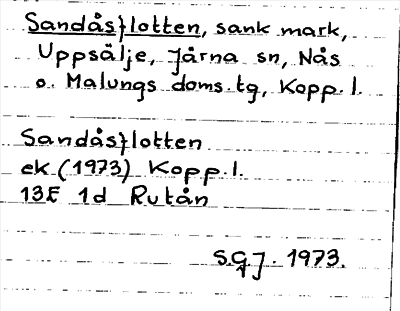 Sandåsflotten, sank mark,
Uppsälje, Järna sn, Nås
o. Malungs doms.tg, Kopp.l.
Sandåsflotten
ek (1973) Kopp.l.
13E 1d Rutån
S.G.J. 1973.